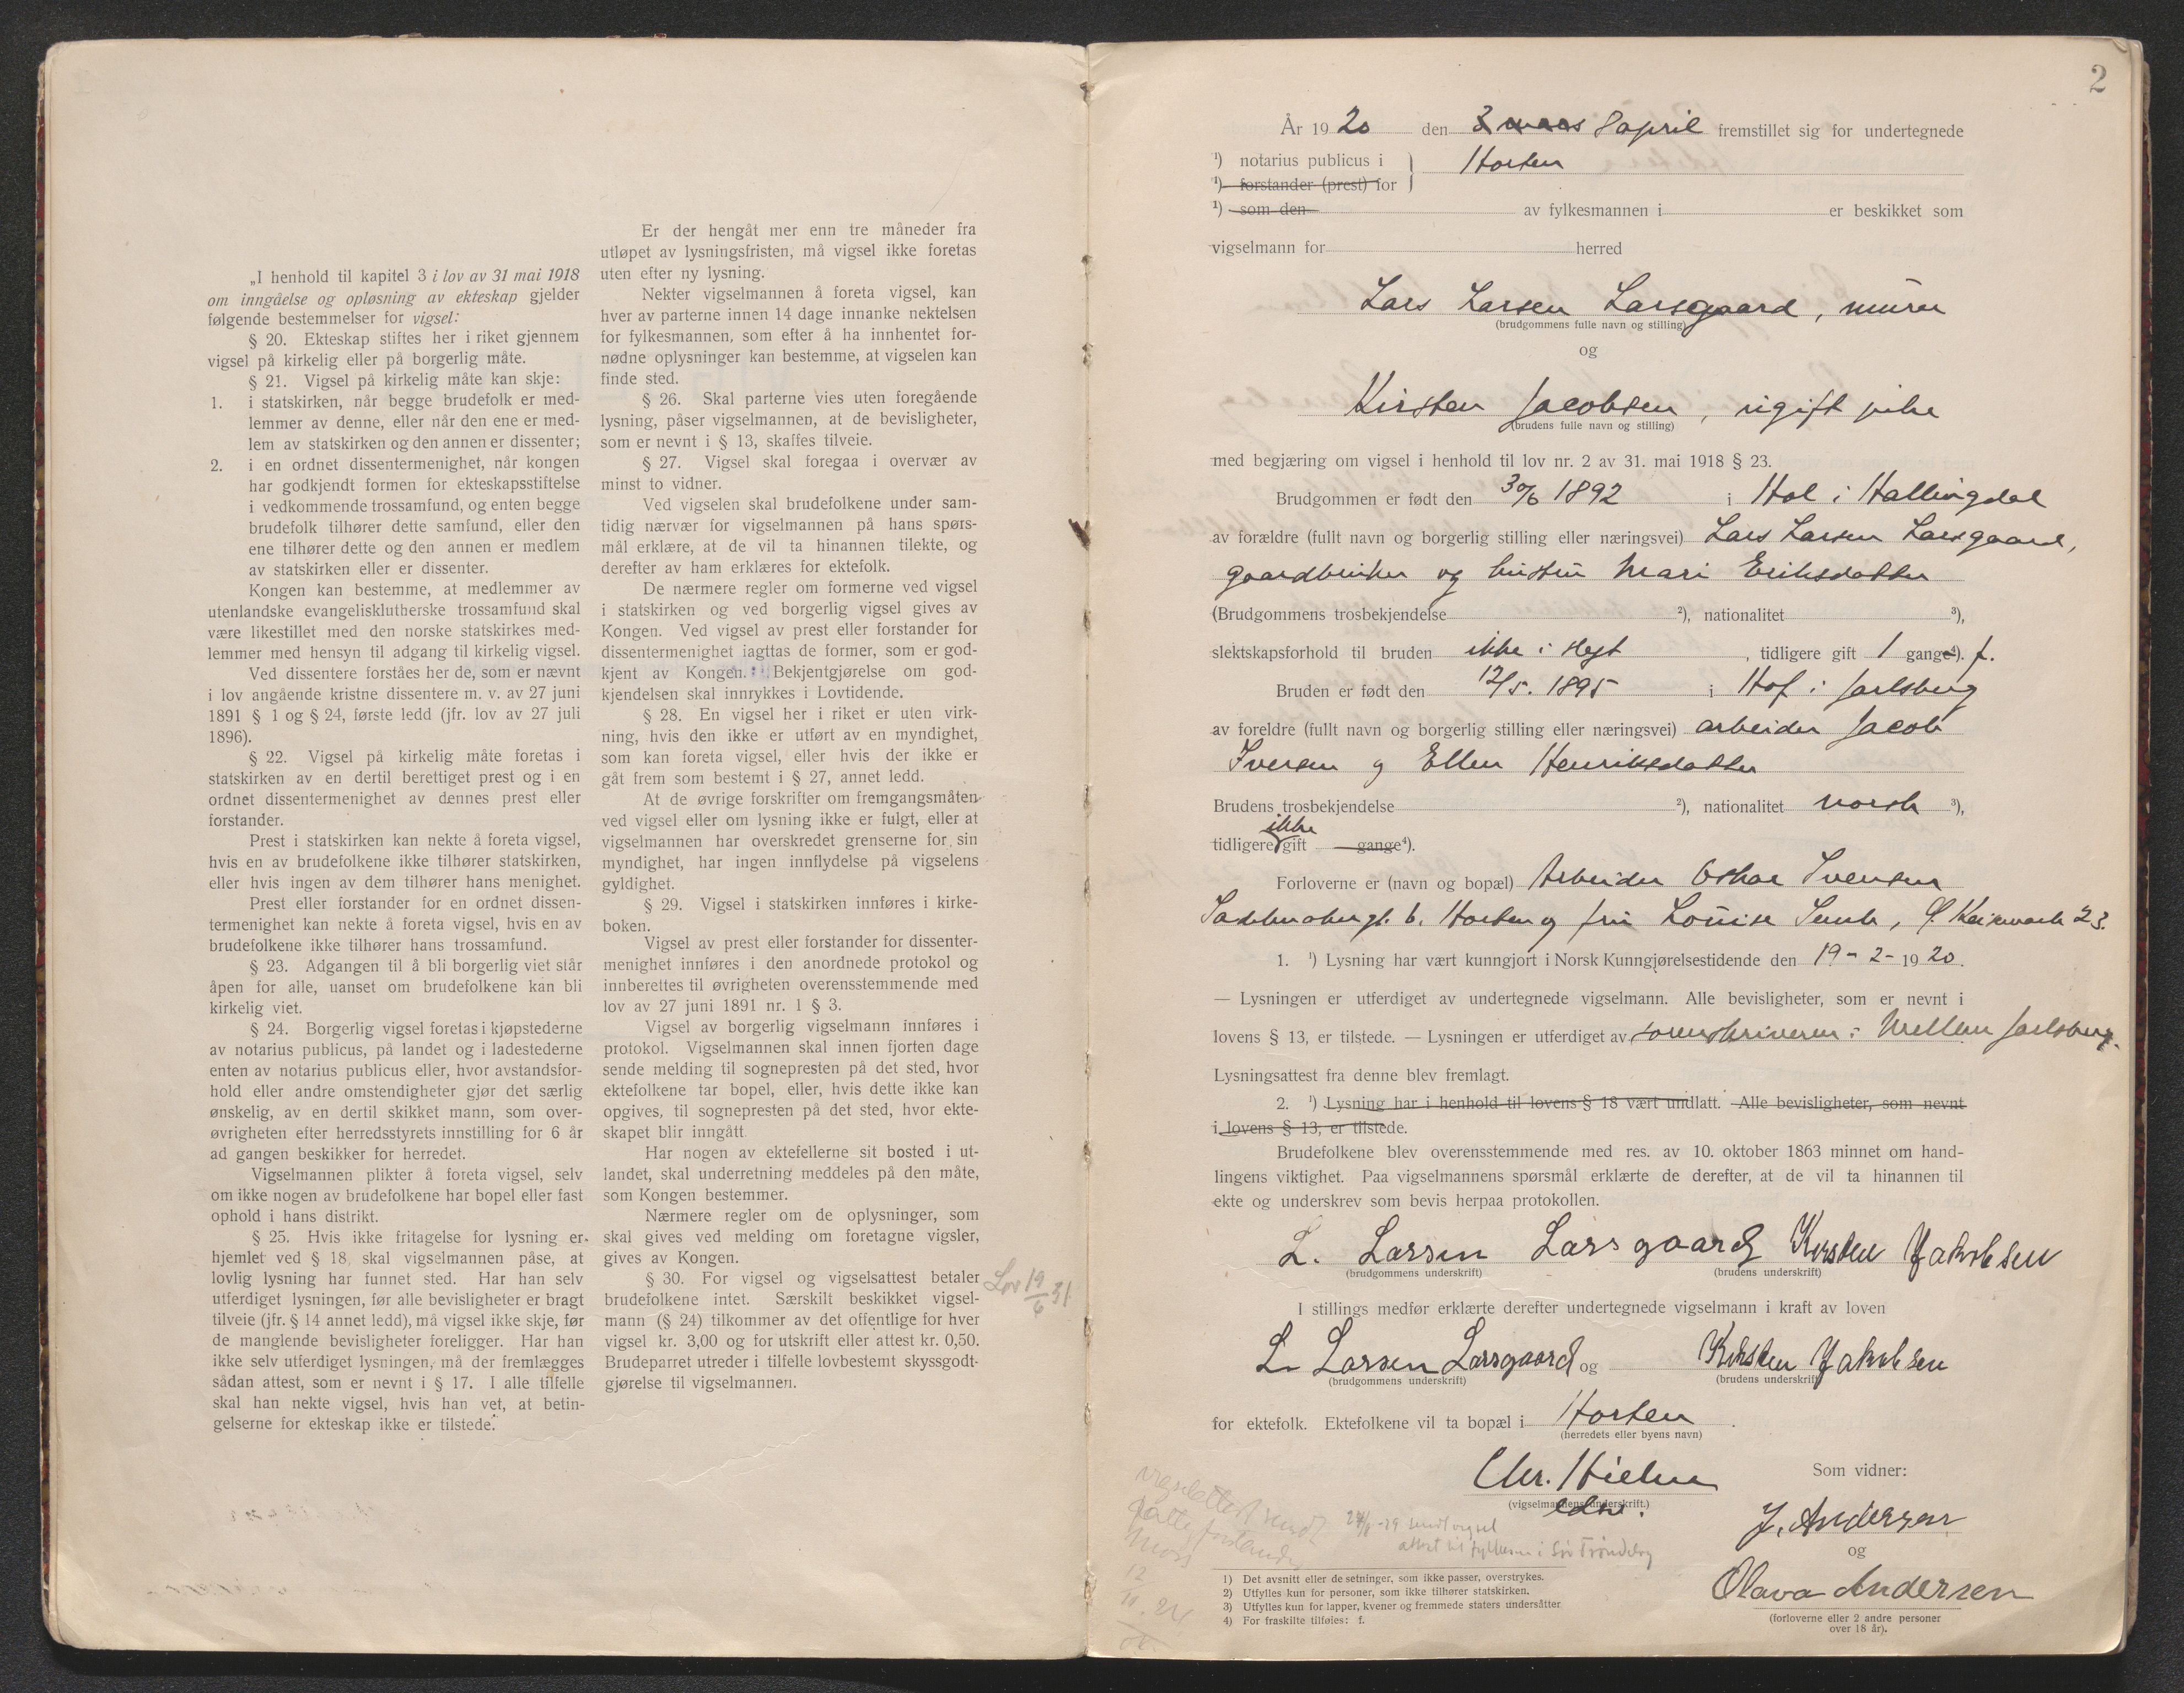 „I henhold til kapitel 3 i lov av 31 mai 1918
om inngåelse og opløsning av ekteskap gjelder
følgende bestemmelser for vigsel:
§ 20. Ekteskap stiftes her i riket gjennem
vigsel på kirkelig eller på borgerlig måte.
§ 21. Vigsel på kirkelig måte kan skje:
1. i statskirken, når begge brudefolk er med-
lemmer av denne, eller når den ene er med-
lem av statskirken og den annen er dissenter;
2. i en ordnet dissentermenighet, når kongen
har godkjendt formen for ekteskapsstiftelse
i vedkommende trossamfund, og enten begge
brudefolk tilhører dette samfund, eller den
ene tilhører dette og den annen er medlem
av statskirken eller er dissenter.
Kongen kan bestemme, at medlemmer av
utenlandske evangelisklutherske trossamfund skal
være likestillet med den norske statskirkes med-
lemmer med hensyn til adgang til kirkelig vigsel.
Ved dissentere forståes her de, som er nævnt
i lov angående kristne dissentere m. v. av 27 juni
1891 § 1 og § 24, første ledd (jfr. lov av 27 juli
1896).
§ 22. Vigsel på kirkelig måte foretas i
statskirken av en dertil berettiget prest og i en
ordnet dissentermenighet av dennes prest eller
forstander.
Prest i statskirken kan nekte å foreta vigsel,
hvis en av brudefolkene ikke tilhører statskirken,
eller hvis ingen av dem tilhører hans menighet.
Prest eller forstander for en ordnet dissen-
termenighet kan nekte å foreta vigsel, hvis en av
brudefolkene ikke tilhører hans trossamfund.
§ 23. Adgangen til å bli borgerlig viet står
åpen for alle, uanset om brudefolkene kan bli
kirkelig viet.
§ 24. Borgerlig vigsel foretas i kjøpstederne
av notarius publicus, på landet og i ladestederne
enten av notarius publicus eller, hvor avstandsfor-
hold eller andre omstendigheter gjør det særlig
ønskelig, av en dertil skikket mann, som over-
øvrigheten efter herredsstyrets innstilling for 6 år
ad gangen beskikker for herredet.
Vigselmannen plikter å foreta vigsel, selv
om ikke nogen av brudefolkene har bopel eller fast
ophold i hans distrikt.
§ 25. Hvis ikke fritagelse for lysning er
hjemlet ved § 18, skal vigselmannen påse, at
lovlig lysning har funnet sted. Har han selv
utferdiget lysningen, før alle bevisligheter er bragt
tilveie (jfr. § 14 annet ledd), må vigsel ikke skje, før
de manglende bevisligheter foreligger. Har han
ikke selv utferdiget lysningen, må der fremlægges
sådan attest, som er nevnt i § 17. I alle tilfelle
skal han nekte vigsel, hvis han vet, at betin-
gelserne for ekteskap ikke er tilstede.
Er der hengåt mer enn tre måneder fra
utløpet av lysningsfristen, må vigsel ikke foretas
uten efter ny lysning.
Nekter vigselmannen å foreta vigsel, kan
hver av parterne innen 14 dage innanke nektelsen
for fylkesmannen, som efter å ha innhentet for-
nødne oplysninger kan bestemme, at vigselen kan
finde sted.
§ 26. Skal parterne vies uten foregående
lysning, påser vigselmannen, at de bevisligheter,
som er nevnt i § 13, skaffes tilveie.
§ 27. Vigsel skal foregaa i overvær av
minst to vidner.
Ved vigselen skal brudefolkene under sam-
tidig nærvær for vigselmannen på hans spørs-
mål erklære, at de vil ta hinannen tilekte, og
derefter av ham erklæres for ektefolk.
De nærmere regler om formerne ved vigsel
i statskirken og ved borgerlig vigsel gives av
Kongen. Ved vigsel av prest eller forstander for
dissentermenighet iagttas de former, som er god-
kjent av Kongen. Bekjentgjørelse om god-
kjendelsen skal innrykkes i Lovtidende.
§ 28. En vigsel her i riket er uten virk-
ning, hvis den ikke er utført av en myndighet,
som kan foreta vigsel, eller hvis der ikke er
gåt frem som bestemt i § 27, annet ledd.
At de øvrige forskrifter om fremgangsmåten
ved vigsel eller om lysning ikke er fulgt, eller at
vigselmannen har overskredet grenserne for sin
myndighet, har ingen innflydelse på vigselens
gyldighet.
§ 29. Vigsel i statskirken innføres i kirke-
boken.
Vigsel av prest eller forstander for dissenter-
menighet innføres i den anordnede protokol og
innberettes til øvrigheten overensstemmende med
lov av 27 juni 1891 nr. 1 § 3.
Vigsel av borgerlig vigselmann innføres i
protokol. Vigselmannen skal innen fjorten dage
sende melding til sognepresten på det sted, hvor
ektefolkene tar bopel, eller, hvis dette ikke kan
opgives, til sognepresten på det sted, hvor ekte-
skapet blir inngått.
Har nogen av ektefellerne sit bosted i ut-
landet, skal underretning meddeles på den måte,
som Kongen bestemmer.
Nærmere regler om de oplysninger, som
skal gives ved melding om foretagne vigsler,
gives av Kongen.
§ 30. For vigsel og vigselsattest betaler
brudefolkene intet. Særskilt beskikket vigsel-
mann (§ 24) tilkommer av det offentlige for hver
vigsel kr. 3,00 og for utskrift eller attest kr. 0,50.
Brudeparret utreder i tilfelle lovbestemt skyssgodt-
gjørelse til vigselmannen.
Lov 19/6 31
2
År 1920 den 3 mars 8 april fremstillet sig for undertegnede
¹) notarius publicus i Horten
¹) forstander (prest) for
¹) som den av fylkesmannen i er beskikket som
vigselmann for herred
Lars Larsen Larsgaard, murer
(brudgommens fulle navn og stilling)
og
Kirsten Jacobsen, ugift pike
(brudens fulle navn og stilling)
med begjæring om vigsel i henhold til lov nr. 2 av 31. mai 1918 § 23.
Brudgommen er født den 30/6 1892 i Hol i Hallingdal
av forældre (fullt navn og borgerlig stilling eller næringsvei) Lars Larsen Larsgaard,
gaardbruker og hustru Mari Eriksdatter
(Brudgommens trosbekjendelse ²), nationalitet ³),
slektskapsforhold til bruden ikke i slegt, tidligere gift 1 gange⁴). f.
Bruden er født den 12/5. 1895 i Hof i Jarlsberg
av foreldre (fullt navn og borgerlig stilling eller næringsvei) arbeider Jacob
Iversen og Ellen Henriksdatter
Brudens trosbekjendelse ²), nationalitet norsk ³),
ikke
tidligere gift gange⁴).
Forloverne er (navn og bopæl) Arbeider Oskar Svensen
6. Horten og fru Louise 23.
1. ¹) Lysning har vært kunngjort i Norsk Kunngjørelsestidende den 19-2-1920.
— Lysningen er utferdiget av undertegnede vigselmann. Alle bevisligheter, som er nevnt i
lovens § 13, er tilstede. — Lysningen er utferdiget av sorenskriveren i Mellem Jarlsberg.
Lysningsattest fra denne blev fremlagt.
2. ¹) Lysning har i henhold til lovens § 18 vært undlatt. Alle bevisligheter, som nevnt
i lovens § 13, er tilstede.
Brudefolkene blev overensstemmende med res. av 10. oktober 1863 minnet om hand-
lingens viktighet. Paa vigselmannens spørsmål erklærte de derefter, at de vil ta hinannen til
ekte og underskrev som bevis herpaa protokollen.
L. Larsen Larsgaard Kirsten Jakobsen
(brudgommens underskrift) (brudens underskrift)
I stillings medfør erklærte derefter undertegnede vigselmann i kraft av loven
L. Larsen Larsgaard og Kirsten Jakobsen
(brudgommens underskrift) (brudens underskrift)
for ektefolk. Ektefolkene vil ta bopæl i Horten.
(herredets eller byens navn)
Chr. Hielm
(vigselmannens underskrift.)
edsv.
Som vidner:
J. Andersen
og
Olava Andersen
(forloverne eller 2 andre personer
over 18 år).
vigselattest sendt
Moss
12
attest til fylkesm i Sør Trøndelag
1) Det avsnitt eller de setninger, som ikke passer, overstrykes.
2) Utfylles kun for personer, som ikke tilhører statskirken.
3) Utfylles kun for lapper, kvener og fremmede staters undersåtter
4) For fraskilte tilføies: f.